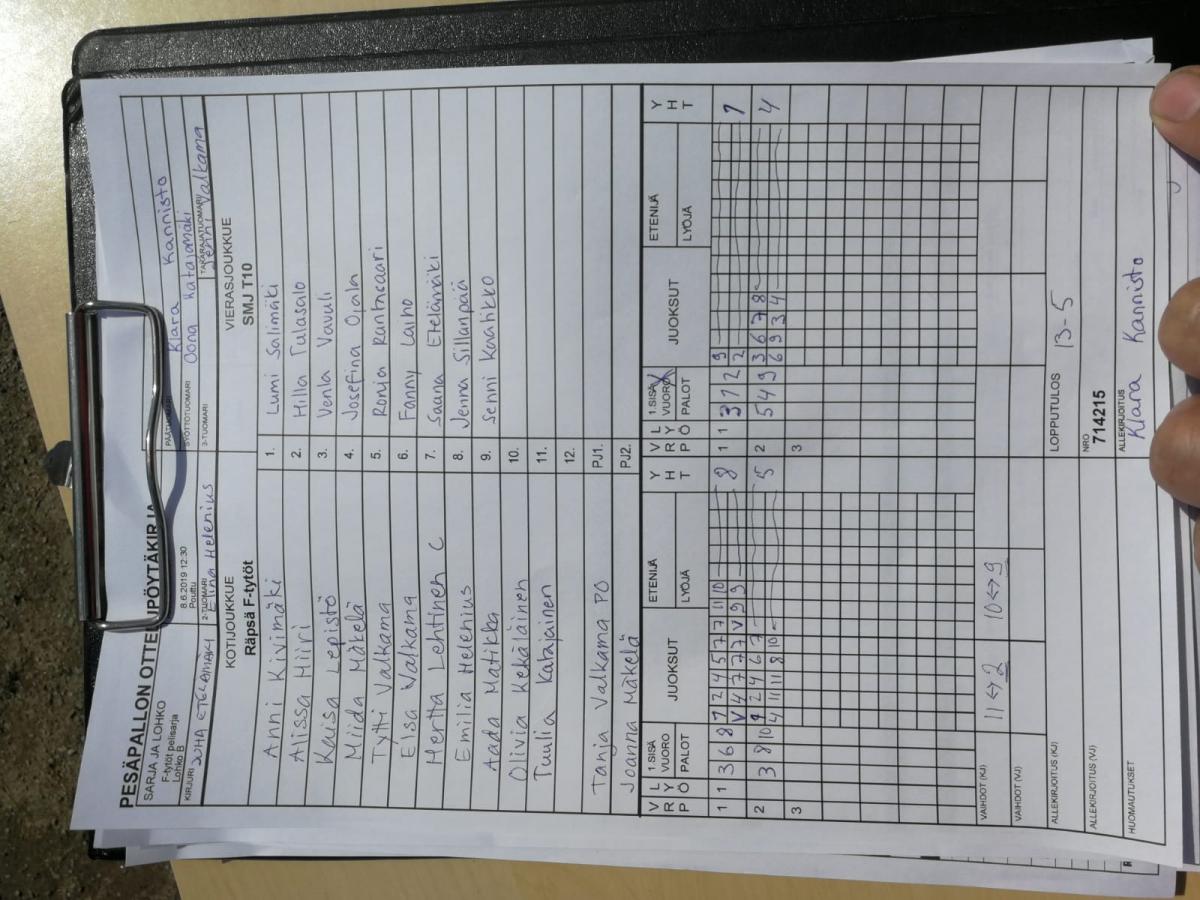 PESÄPALLON OTTELUPÖYTÄKIRJA
SARJA JA LOHKO
F-tytöt pelisarja
Lohko B
8.6.2019 12:30
Pouttu
PÄÄTUOMARI
Klara Kannisto
SYÖTTÖTUOMARI
Oona Katajamäki
KIRJURI JUHA ETELÄMÄKI
2-TUOMARI
Elina Helenius
3-TUOMARI
TAKARAJATUOMARI
Jenni Valkama
KOTIJOUKKUE
Räpsä F-tytöt
VIERASJOUKKUE
SMJ T10
Anni Kivimäki 1. Lumi Salimäki
Alissa Hiiri 2. Hilla Tulasalo
Kaisa Lepistö 3. Venla Vavuli
Miida Mäkelä 4. Josefina Ojala
Tytti Valkama 5. Ronja
Elsa Valkama 6. Fanny Laiho
Hertta Lehtinen C 7. Saana Etelämäki
Emilia Helenius 8. Jenna Sillanpää
Aada Matikka 9. Senni Kaalikko
Olivia Kekäläinen 10.
Tuulia Katajainen 11.
12.
Tanja Valkama PO PJ1.
Joanna Mäkelä PJ2.
VRP LYÖ 1.SISÄ VUORO PALOT JUOKSUT ETENIJÄ LYÖJÄ YHT
VRP LYÖ 1.SISÄ VUORO PALOT JUOKSUT ETENIJÄ LYÖJÄ YHT
1 1 3 6 8 1 2 4 5 7 7 11 10
V 4 7 7 7 V 9 9 8
1 1 3 1 2 9
2 1
2 3 8 10 1 2 4 6 7
4 11 11 8 10 5
2 5 4 9 3 6 7 8
6 9 3 4 4
3
3
VAIHDOT (KJ) 11<->2 10<->9
VAIHDOT (VJ)
ALLEKIRJOITUS (KJ)
LOPPUTULOS 13-5
ALLEKIRJOITUS (VJ)
NRO
714215
HUOMAUTUKSET
ALLEKIRJOITUS
Klara Kannisto